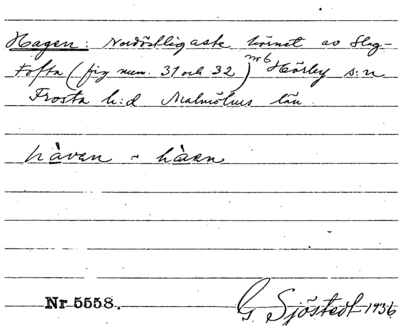 Hagen: Nordöstligaste hörnet av Slag-
tofta (fig num. 31 och 32) nr 6 Hörby s:n
Frosta h:d Malmöhus län.
hàvan ~ hàan
Nr 5558.
G Sjöstedt 1936